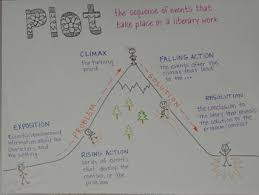 Plot
the sequence of events that
take place in a literary work
CLIMAX
the turning
point
FALLING ACTION
the events after the
climax that lead
to the ...
PROBLEM
SOLUTION
RESOLUTION
the conclusion to
the story that
the solution to the
problem/conflict
EXPOSITION
information about the
and the
setting
RISING ACTION
series of events
that develop the
conflict or the
problem